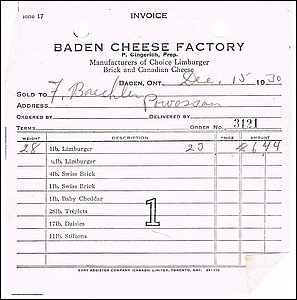 INVOICE
BADEN CHEESE FACTORY
P. Gingerich, Prop.
Manufacturers of Choice Limburger
Brick and Canadian Cheese
BADEN, ONT., Dec. 15 1930
SOLD TO F. Baechler
ADDRESS Powassan
ORDERED BY DELIVERED BY
TERMS ORDER NO. 3121
WEIGHT DESCRIPTION PRICE AMOUNT
28 1lb. Limburger 23 $6 44
½lb. Limburger
4lb. Swiss Brick
5lb. Swiss Brick
11lb. Baby Cheddar
25lb. Triplets
17lb. Daisies
11lb. Stiltons
1